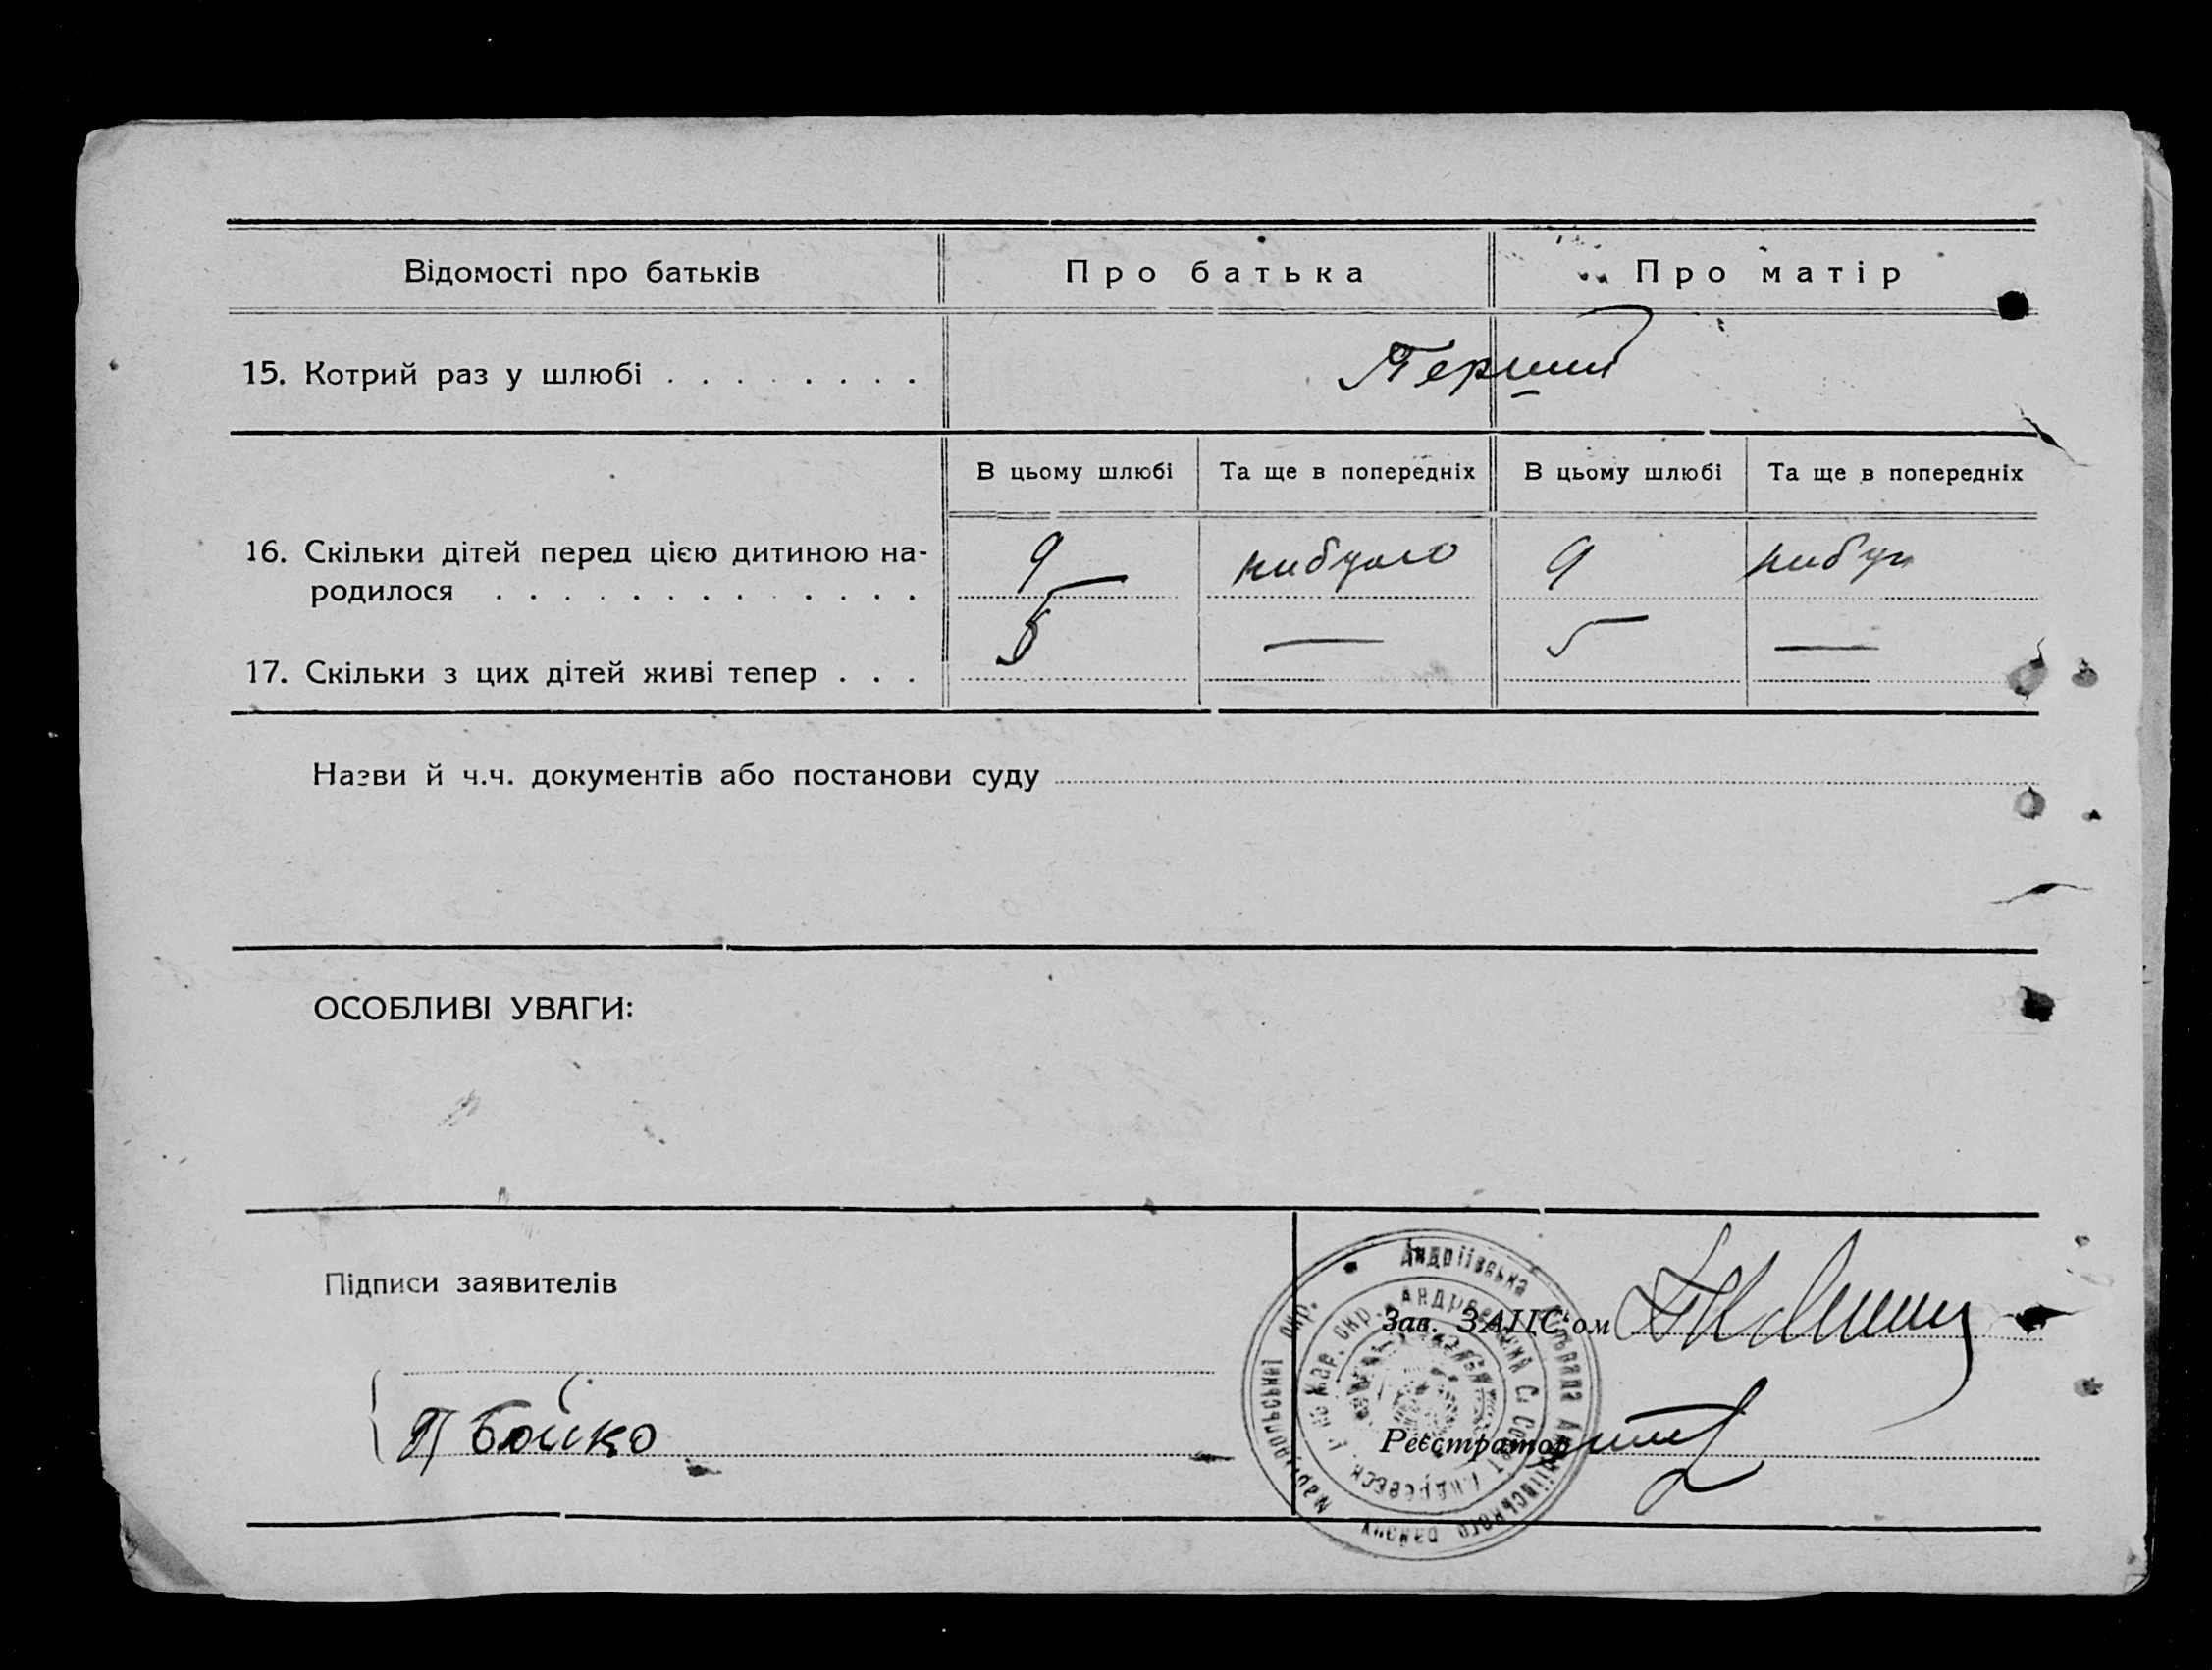 Відомості про батьків Про батька Про матір
15. Котрий раз у шлюбі . . . . . . . . Перший
В цьому шлюбі Та ще в попередніх В цьому шлюбі Та ще в попередніх
16. Скільки дітей перед цією дитиною на-
родилося . . . . . . . . . . . . . 9 нибуло 9
17. Скільки з цих дітей живі тепер . . . 5 — 5 —
Назви й ч.ч. документів або постанови суду
ОСОБЛИВІ УВАГИ:
Підписи заявителів
Зав. ЗАПС'ом
П Бойко
Реєстратор
Андріївська Андріївського району Маріупольської окр.